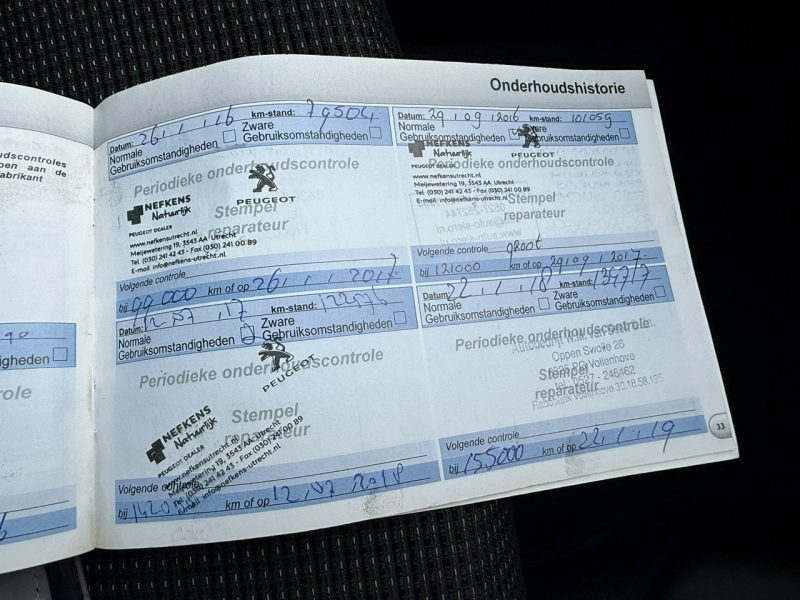 Onderhoudshistorie
dscontroles
en aan de
abrikant
heden
Datum: 26.1.16 km-stand: 79504
Normale Gebruiksomstandigheden
Zware Gebruiksomstandigheden
Periodieke onderhoudscontrole
NEFKENS
Natuurlijk
PEUGEOT DEALER
PEUGEOT
Stempel
reparateur
www.nefkensutrecht.nl
Meijewetering 19, 3543 AA Utrecht
Tel (030) 241 42 43 - Fax (030) 241 00 89
E-mail info@nefkens-utrecht.nl
Volgende controle
bij 99000 km of op 26.1.2017
Datum: 29/09/2016 km-stand: 101059
Normale Gebruiksomstandigheden
Zware Gebruiksomstandigheden
Periodieke onderhoudscontrole
NEFKENS
Natuurlijk
PEUGEOT DEALER
PEUGEOT
Stempel
reparateur
www.nefkensutrecht.nl
Meijewetering 19, 3543 AA Utrecht
Tel (030) 241 42 43 - Fax (030) 241 00 89
E-mail info@nefkens-utrecht.nl
Volgende controle groot
bij 121000 km of op 29.09.2017
Datum: 12.07.17 km-stand:
Normale Gebruiksomstandigheden
Zware Gebruiksomstandigheden
Periodieke onderhoudscontrole
PEUGEOT
NEFKENS
Natuurlijk
PEUGEOT DEALER
Stempel
reparateur
www.nefkensutrecht.nl
Meijewetering 19, 3543 AA Utrecht
Tel (030) 241 42 43 - Fax (030) 241 00 89
E-mail info@nefkens-utrecht.nl
Volgende controle
bij km of op 12.07 2018
Datum: 22.1.18 km-stand:
Normale Gebruiksomstandigheden
Zware Gebruiksomstandigheden
Periodieke onderhoudscontrole
Oppen Swolle 26
Vollenhove
tel. 0527 - 246462
Rabobank Vollenhove 30.18.58.105
Stempel
reparateur
Volgende controle
bij 155000 km of op 22.1.19
33